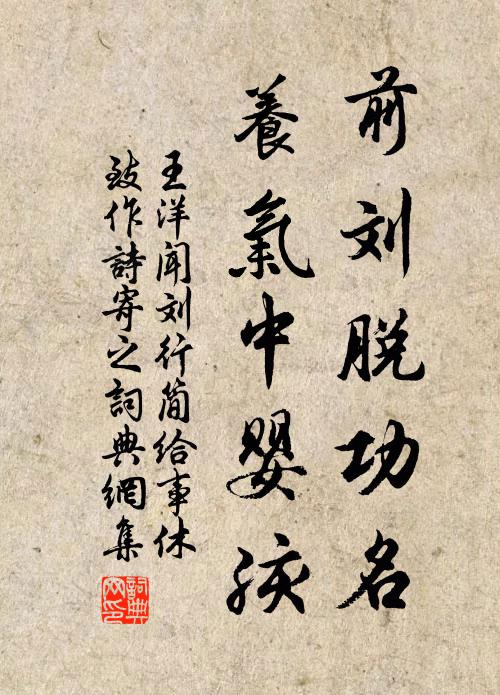 前刘脱功名
養氣中嬰孩
王洋闻刘行简给事休
致作詩寄之詞典網集
詞典
网印